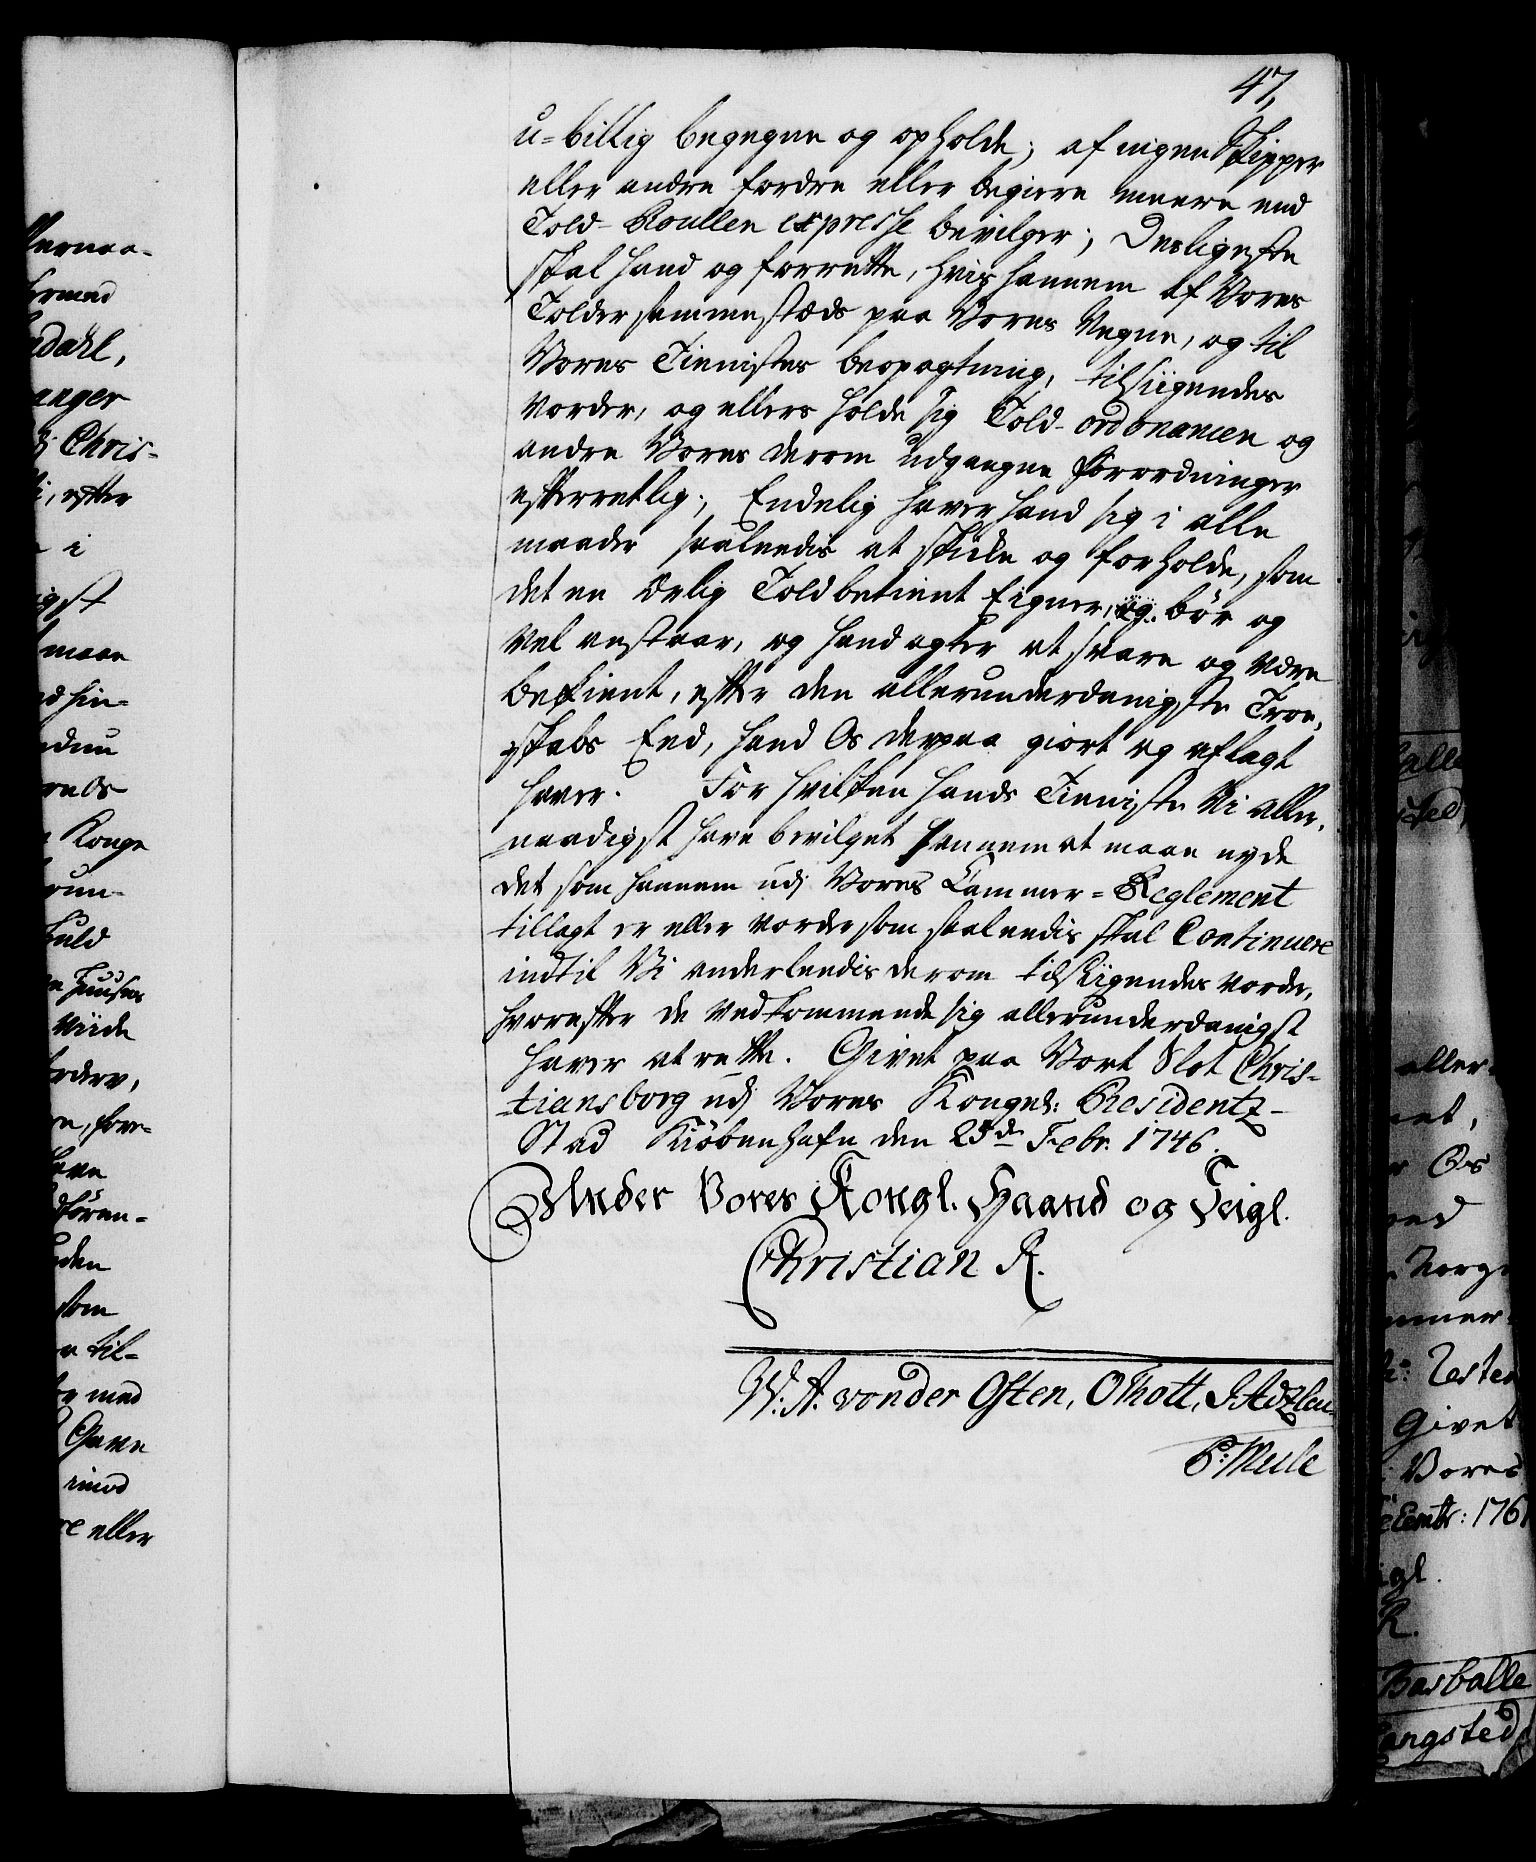 47,
u-billig begegne og opholde; af ingen Skipper
eller andre fordre eller begiere meere end
Told-Roullen expresse bevilger; Desligeste
skal hand og forrette, hvis hannem af Vores
Tolder sammestæds paa Vores Vegne, og til
Vores Tienistes beopagtning, tilsiigendes
vorder, og ellers holde sig Told-ordonancen og
andre Vores derom udgangne Forordninger
efterretlig; Endelig haver hand sig i alle
maader saaleedis at skicke og forholde, som
det en ærlig Toldbetient Eigner, og bör og
vel anstaar, og hand agter at svare og være
bekient, efter den allerunderdanigste Troe,
skabs Eed, hand Os derpaa giort og aflagt
haver. For hvilken hands Tieniste Vi aller,
naadigst have bevilget hannem at maae nyde
det som hannem udj Vores Cammer=Reglement
tillagt er eller vorder som saaleedis skal Continuere
indtil Vi anderleedis derom tilsiigendes vorder,
hvorefter de vedkommende sig allerunderdanigst
haver at rette. Givet paa Vort Slot Chris-
-tiansborg udj Vores Kongel: Residentz-
Stad Kiöbenhafn den 25de Febr. 1746.
Under Vores Kongl. Haand og Seigl.
Christian R.
W. A. von der Osten, O Thott,
vernaa-
hermed
ndahl,
anger
Chris-
, efter
i
igst
maae
nd sin-
eOs
Konge
run-
huld
Huuses
viide
, fore-
have
dfören-
den
som
til-
med
Gave
imod
eller
aller
Os
ved
Norge
Givet
Vores
Decembr: 1761
igl.
R.
Basballe
angsted